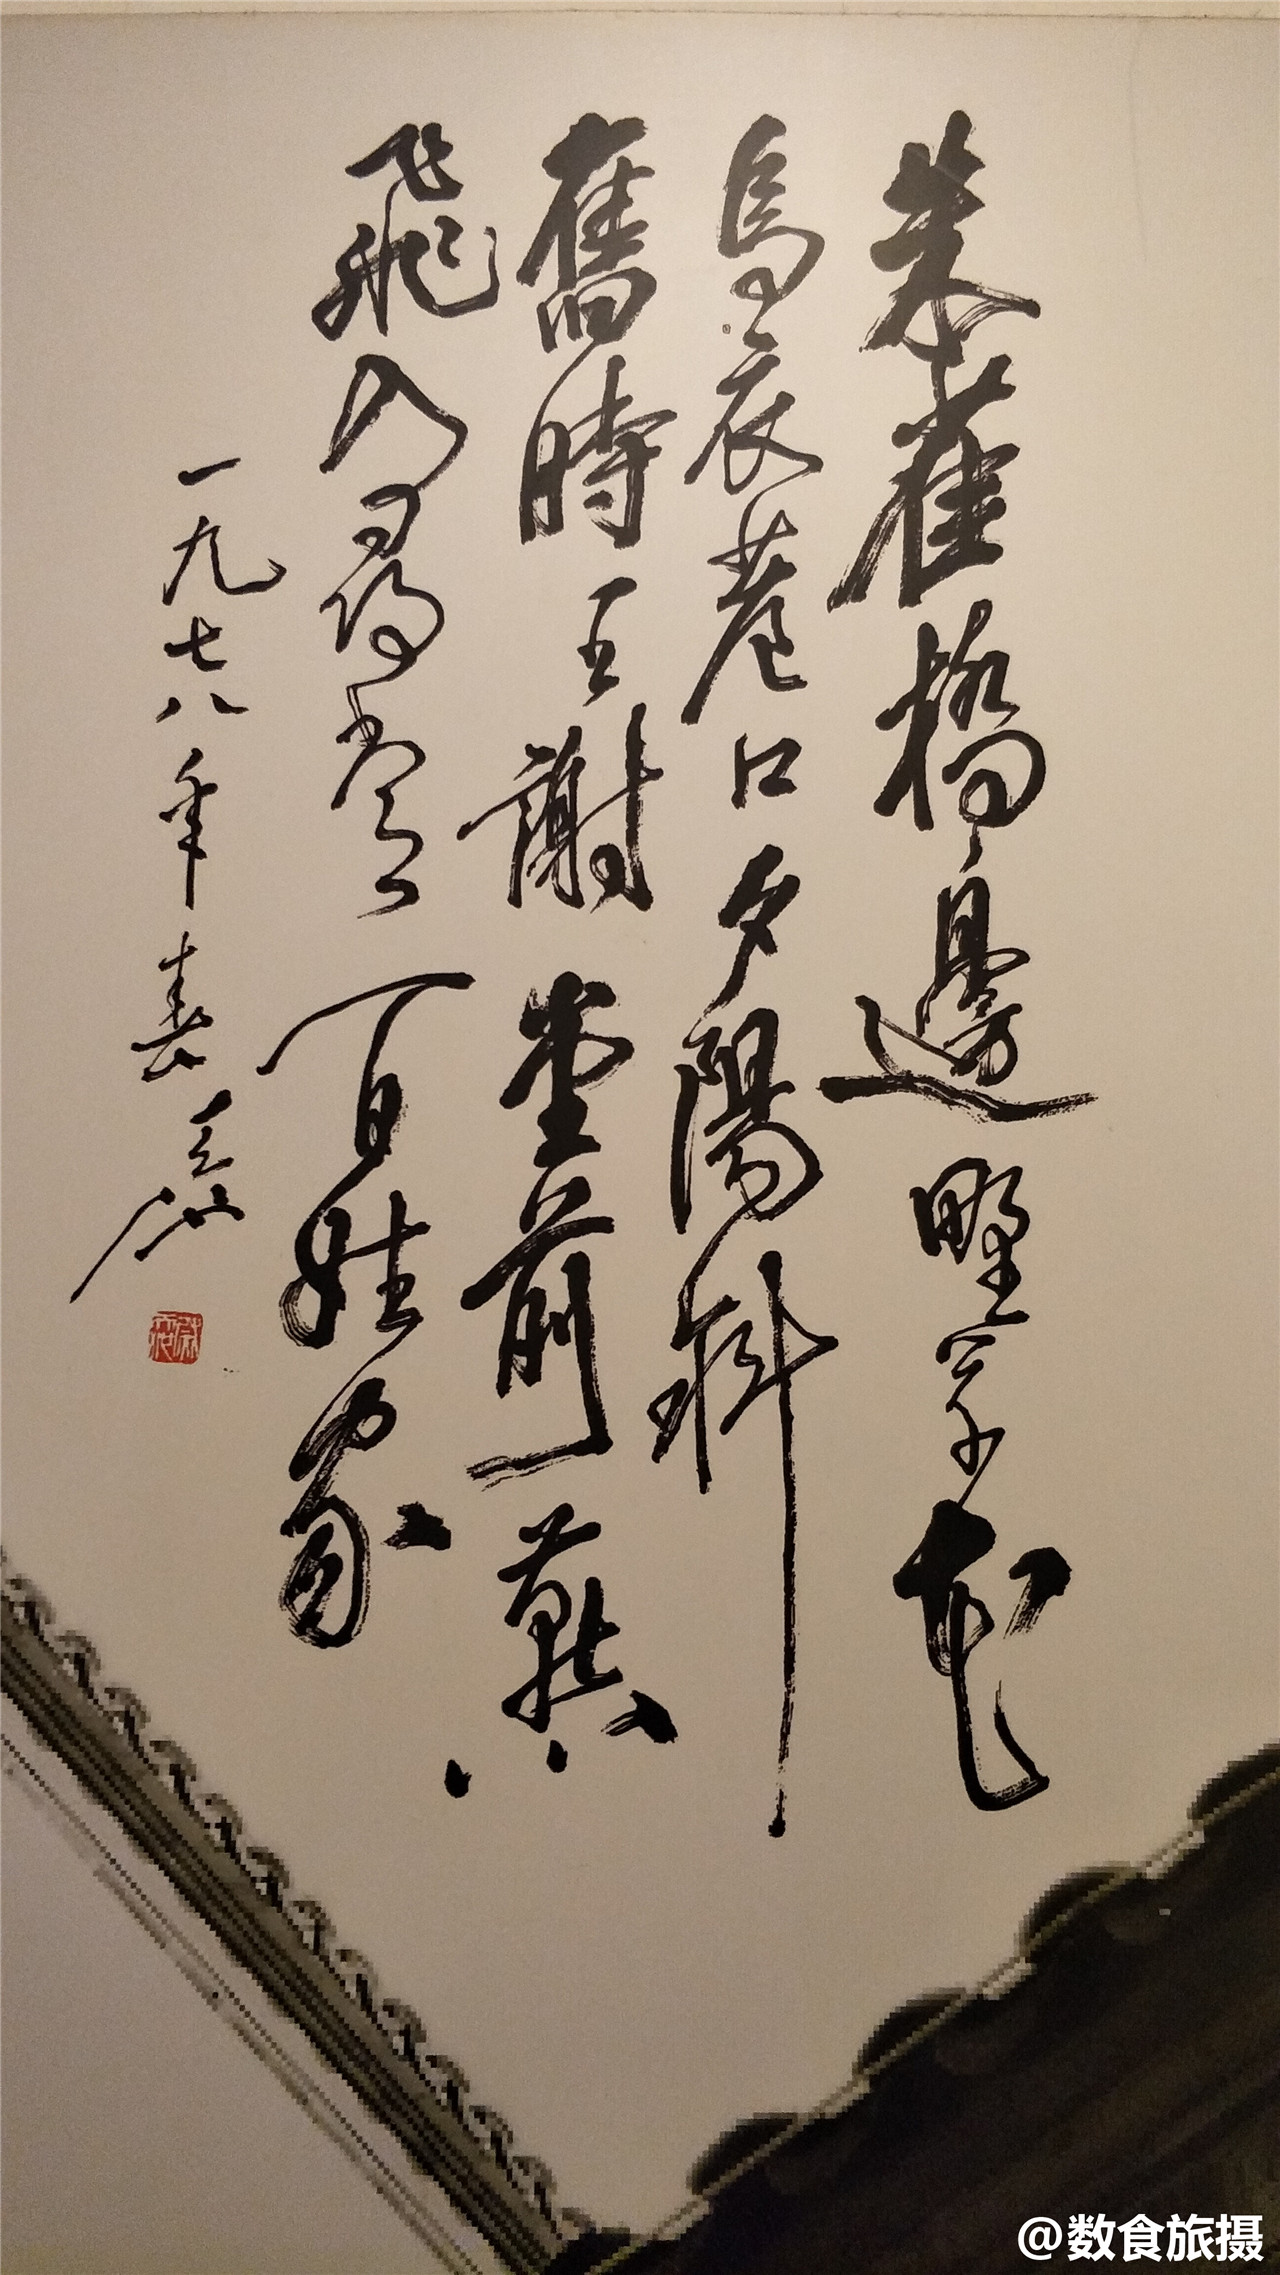 朱雀橋邊野草花
烏衣巷口夕陽斜
舊時王謝堂前燕
飛入尋常百姓家
一九七八年
@数食旅摄